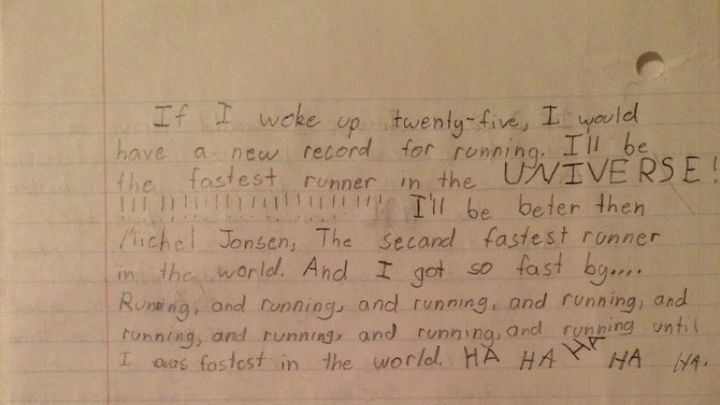 If I woke up twenty-five, I would
have a new record for running. I'll be
the fastest runner in the UNIVERSE!
!!! !!!!!!!!!!!!!!!!!!!! I'll be beter then
Michel Jonsen, The secand fastest runner
in the world. And I got so fast by....
Running, and running, and running, and running, and
running, and running, and running, and running until
I was fastest in the world. HA HA HA HA HA.